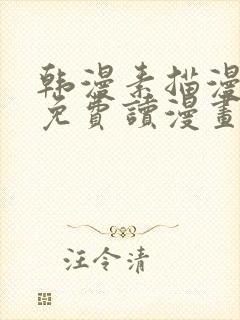 韩漫素描漫
免費讀漫畫
汪令清